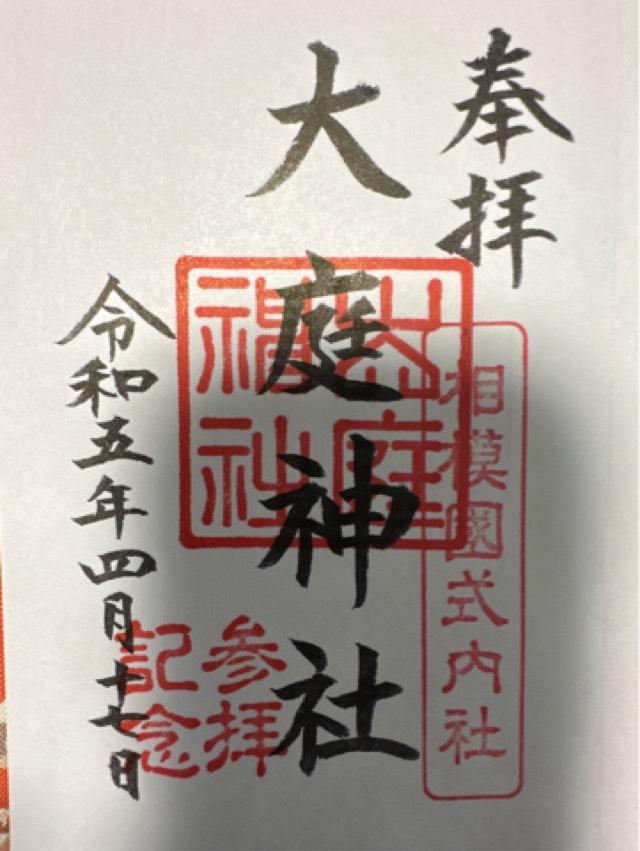 奉拝
相模國式内社
大庭神社
大庭
神社
参拝
記念
令和五年四月十七日